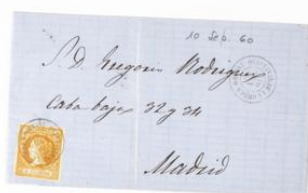 10 Sep. 60
S. D. Gregorio Rodriguez
Caba baja 32 y 34
Madrid